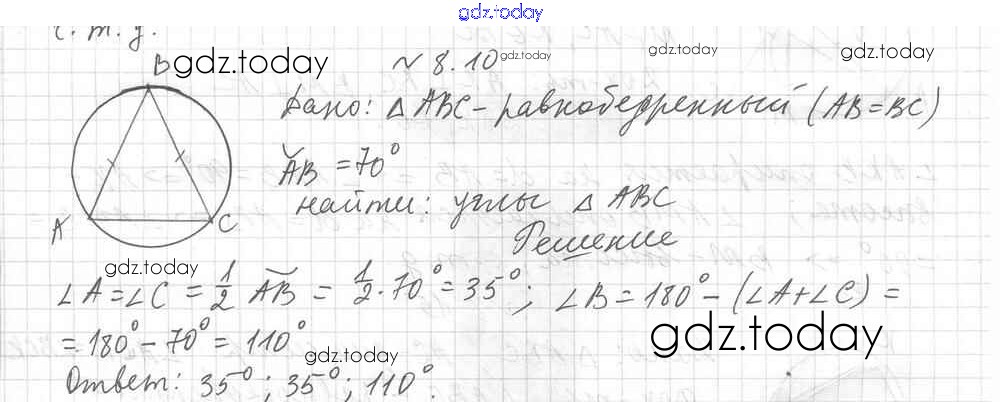 gdz.today
ч.т.д.
gdz.today
~ 8.10
gdz.today
gdz.today
gdz.today
B
Дано: △ ABC - равнобедренный (AB = BC)
AB = 70°
найти: углы △ ABC
A
C
Решение
gdz.today
∠A = ∠C = 1/2 AB = 1/2 · 70° = 35°; ∠B = 180° - (∠A + ∠C) =
= 180° - 70° = 110°
gdz.today
gdz.today
Ответ: 35°; 35°; 110°.